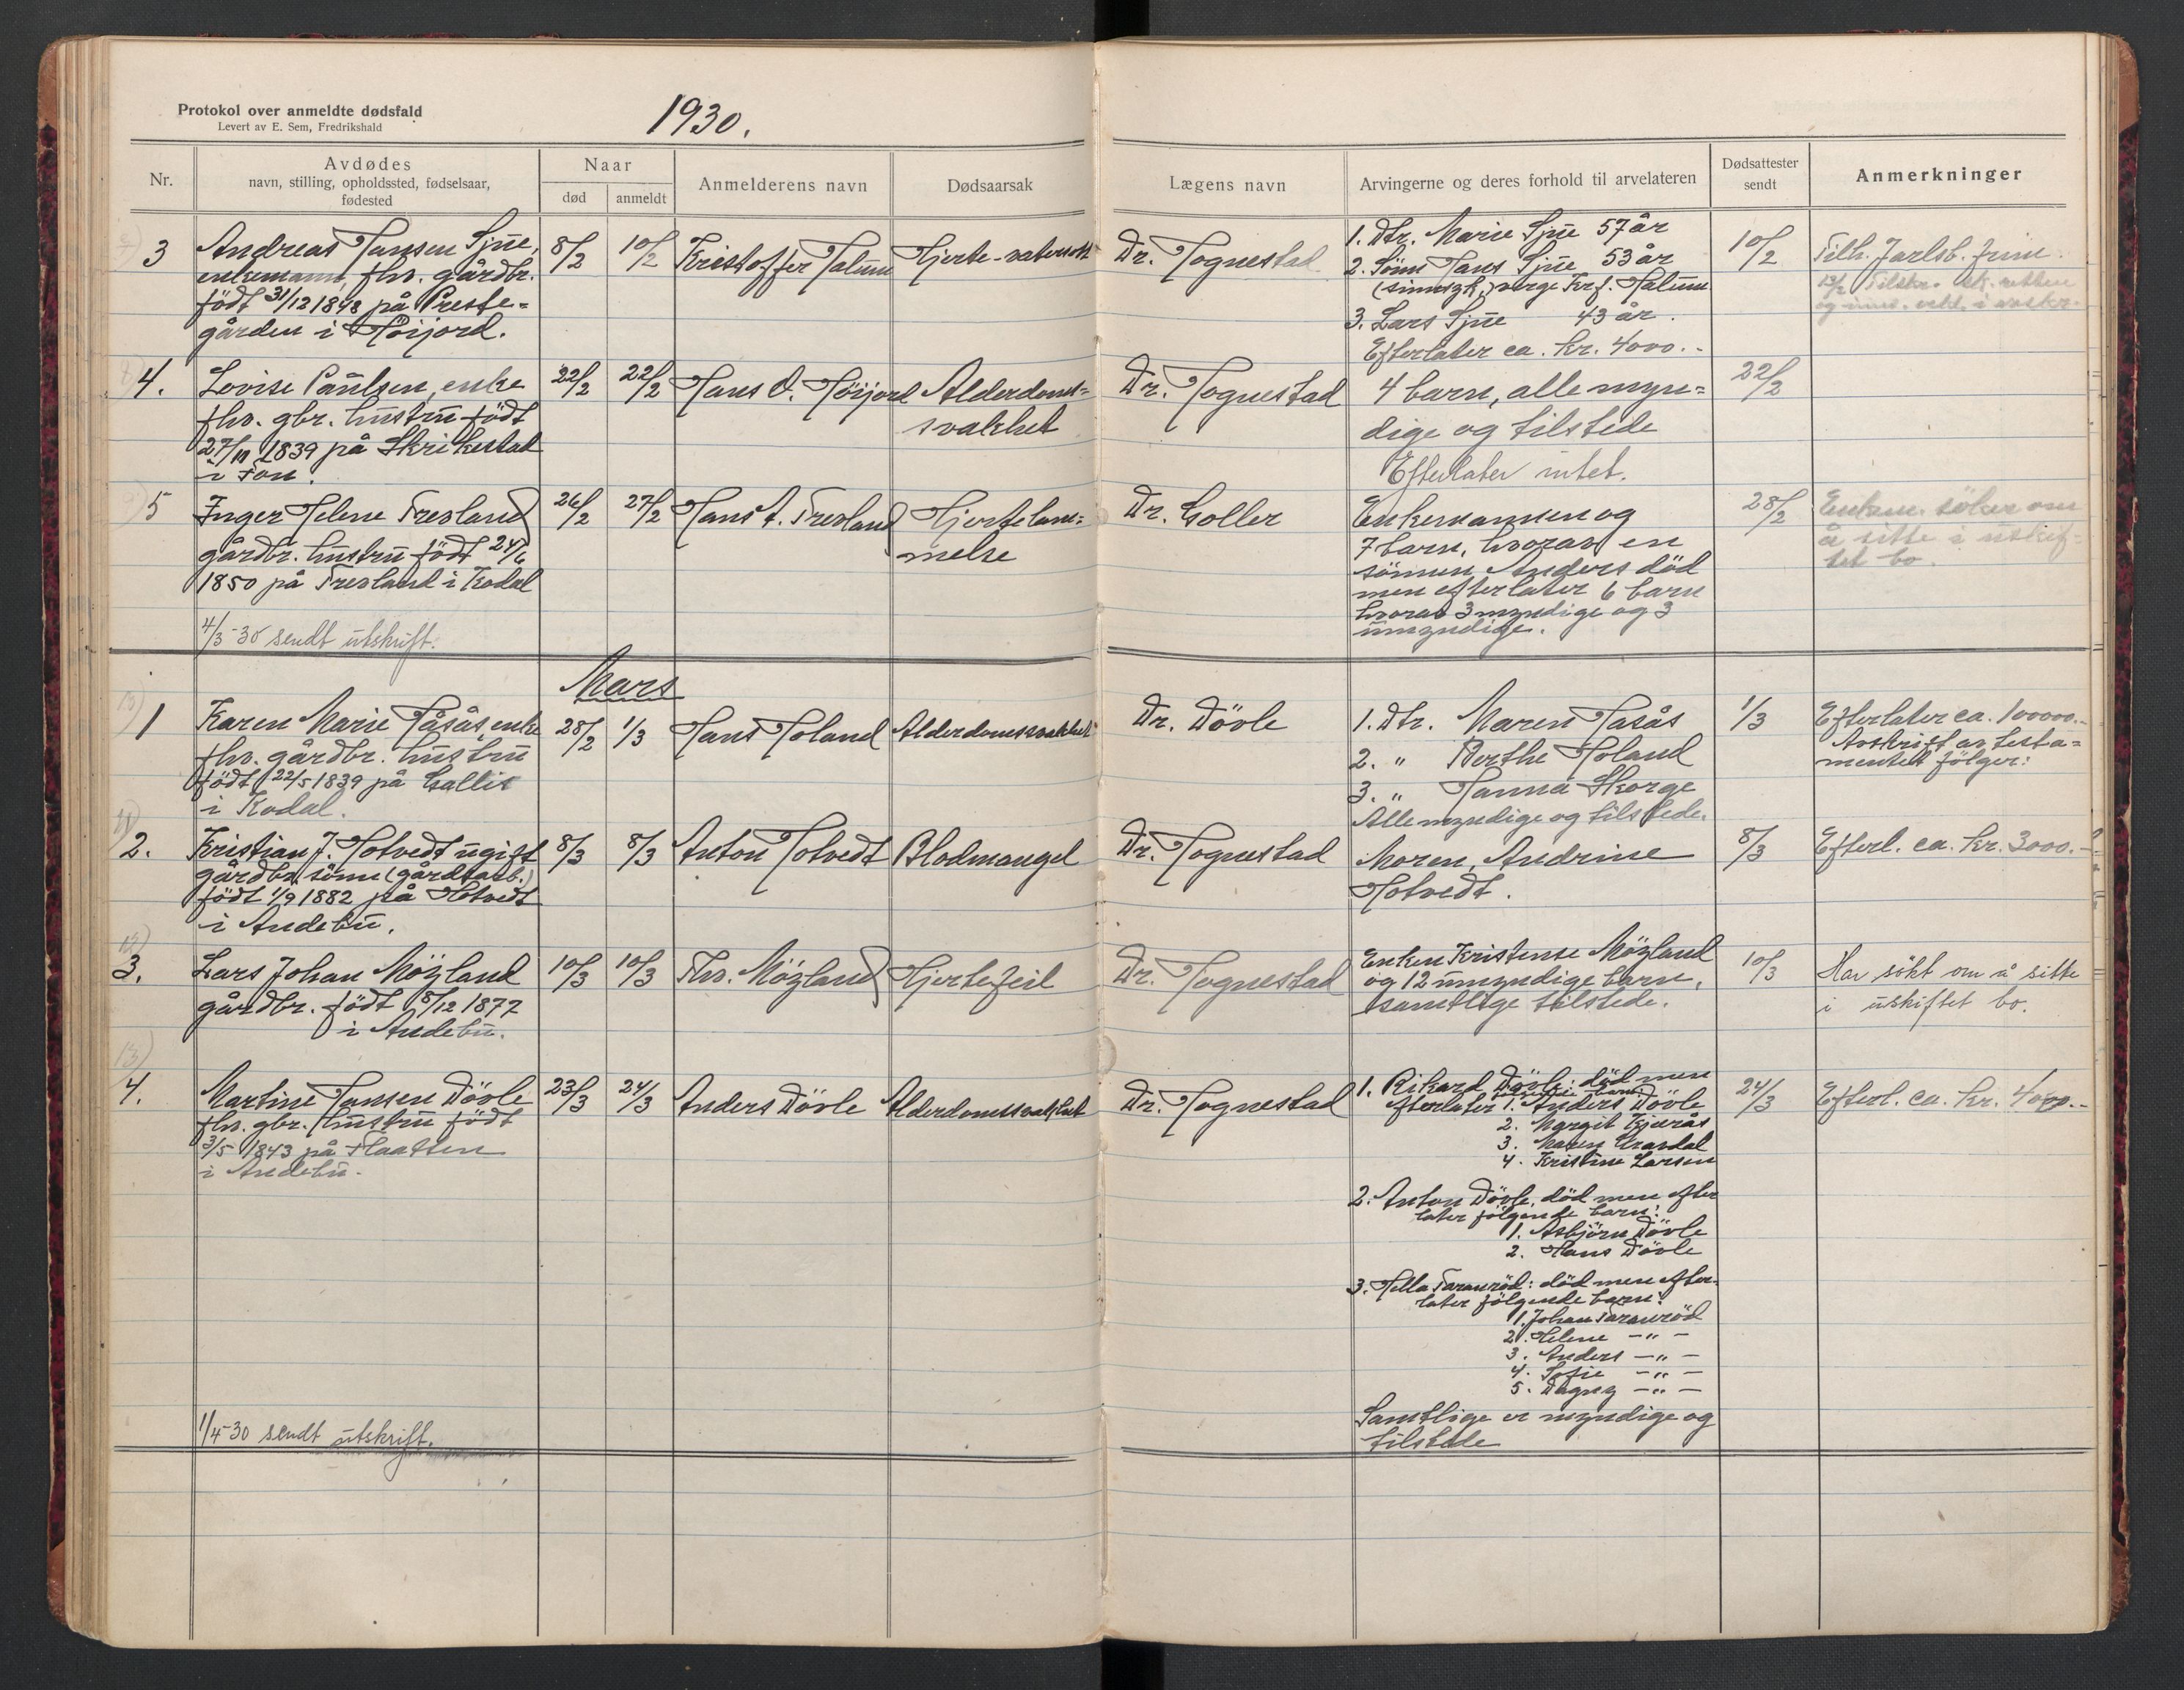 Protokol over anmeldte dødsfald
Levert av E. Sem, Fredrikshald
1930.
Nr.
Avdødes
navn, stilling, opholdssted, fødselsaar,
fødested
Naar
død
anmeldt
Anmelderens navn
Dødsaarsak
Lægens navn
Arvingerne og deres forhold til arvelateren
Dødsattester
sendt
Anmerkninger
3
Andreas Hansen Sjue,
enkemann, fhv. gårdbr.
født 31/12 1848 på Preste-
gården i Høijord.
8/2
10/2
Kristoffer Halum
Hjerte-vatersott
Dr. Tognestad
1. Dtr. Marie Sjue 57 år
2. Sønn Hans Sjue 53 år
(sinnsyk) verge Krf. Halum
3. Lars Sjue 43 år.
Efterlater ca. kr. 4000.-
10/2
Tilh. Jarlsb.
4.
Lovise Paulsen, enke
fhv. gbr. hustru født
27/11 1839 på Skrikestad
i Fon.
22/2
22/2
Hans O. Høijord
Alderdoms-
svakhet
Dr. Tognestad
4 barn, alle myn-
dige og tilstede
Efterlater intet.
22/2
5
Inger Helene Trevland
gårdbr. hustru født 24/6
1850 på Trevland i Kodal
26/2
27/2
Hans A. Trevland
Hjertelam-
melse
Dr. Goller
Enkemannen og
7 barn, hvorav en
sønnen Anders død
men efterlater 6 barn
hvorav 3 myndige og 3
umyndige.
28/2
Enkem. søker om
å sitte i uskif-
tet bo.
4/3-30 sendt utskrift.
Mars
1
Karen Marie Håsås, enke
fhv. gårdbr. hustru
født 22/5 1839 på Gallis
i Kodal.
28/2
1/3
Hans Holand
Alderdomssvakhet
Dr. Døvle
1. Dtr. Maren Hasås
2. " Berthe Holand
3. " Hanna Skorge
Alle myndige og tilstede.
1/3
Efterlater ca. 100000.-
Avskrift av testa-
mentet følger:
2.
Kristian J. Hotvedt ugift
gårdbr. sønn (gårdsarb.)
født 1/9 1882 på Hotvedt
i Andebu.
8/3
8/3
Anton Hotvedt
Blodmangel
Dr. Tognestad
Moren, Andrine
Hotvedt.
8/3
Efterl. ca. kr. 3000.-
3.
Lars Johan Møyland
gårdbr. født 8/12 1877
i Andebu.
10/3
10/3
Thv. Møyland
Hjertefeil
Dr. Tognestad
Enken Kristense Møyland
og 12 umyndige barn,
samtlige tilstede.
10/3
Har søkt om å sitte
i uskiftet bo.
4.
Martine Hansen Døvle
fhv. gbr. hustru født
3/5 1843 på Flaatten
i Andebu.
23/3
24/3
Anders Døvle
Alderdomssvakhet
Dr. Tognestad
1. Rikard Døvle: død men
efterlater 1. Anders Døvle
2. Margit Kjærås
3. Maren
4. Kristine Larsen
2. Anton Døvle, død men efter
later følgende barn:
1. Asbjørn Døvle
2. Hans Døvle
3. Hella Taranrød: død men efter-
later følgende barn:
1. Johan Taranrød
2. Helene -"-
3. Anders -"-
4. Sofie -"-
5. Dagny -"-
Samtlige er myndige og
tilstede
24/3
Efterl. ca. kr. 4000.-
1/4-30 sendt utskrift.